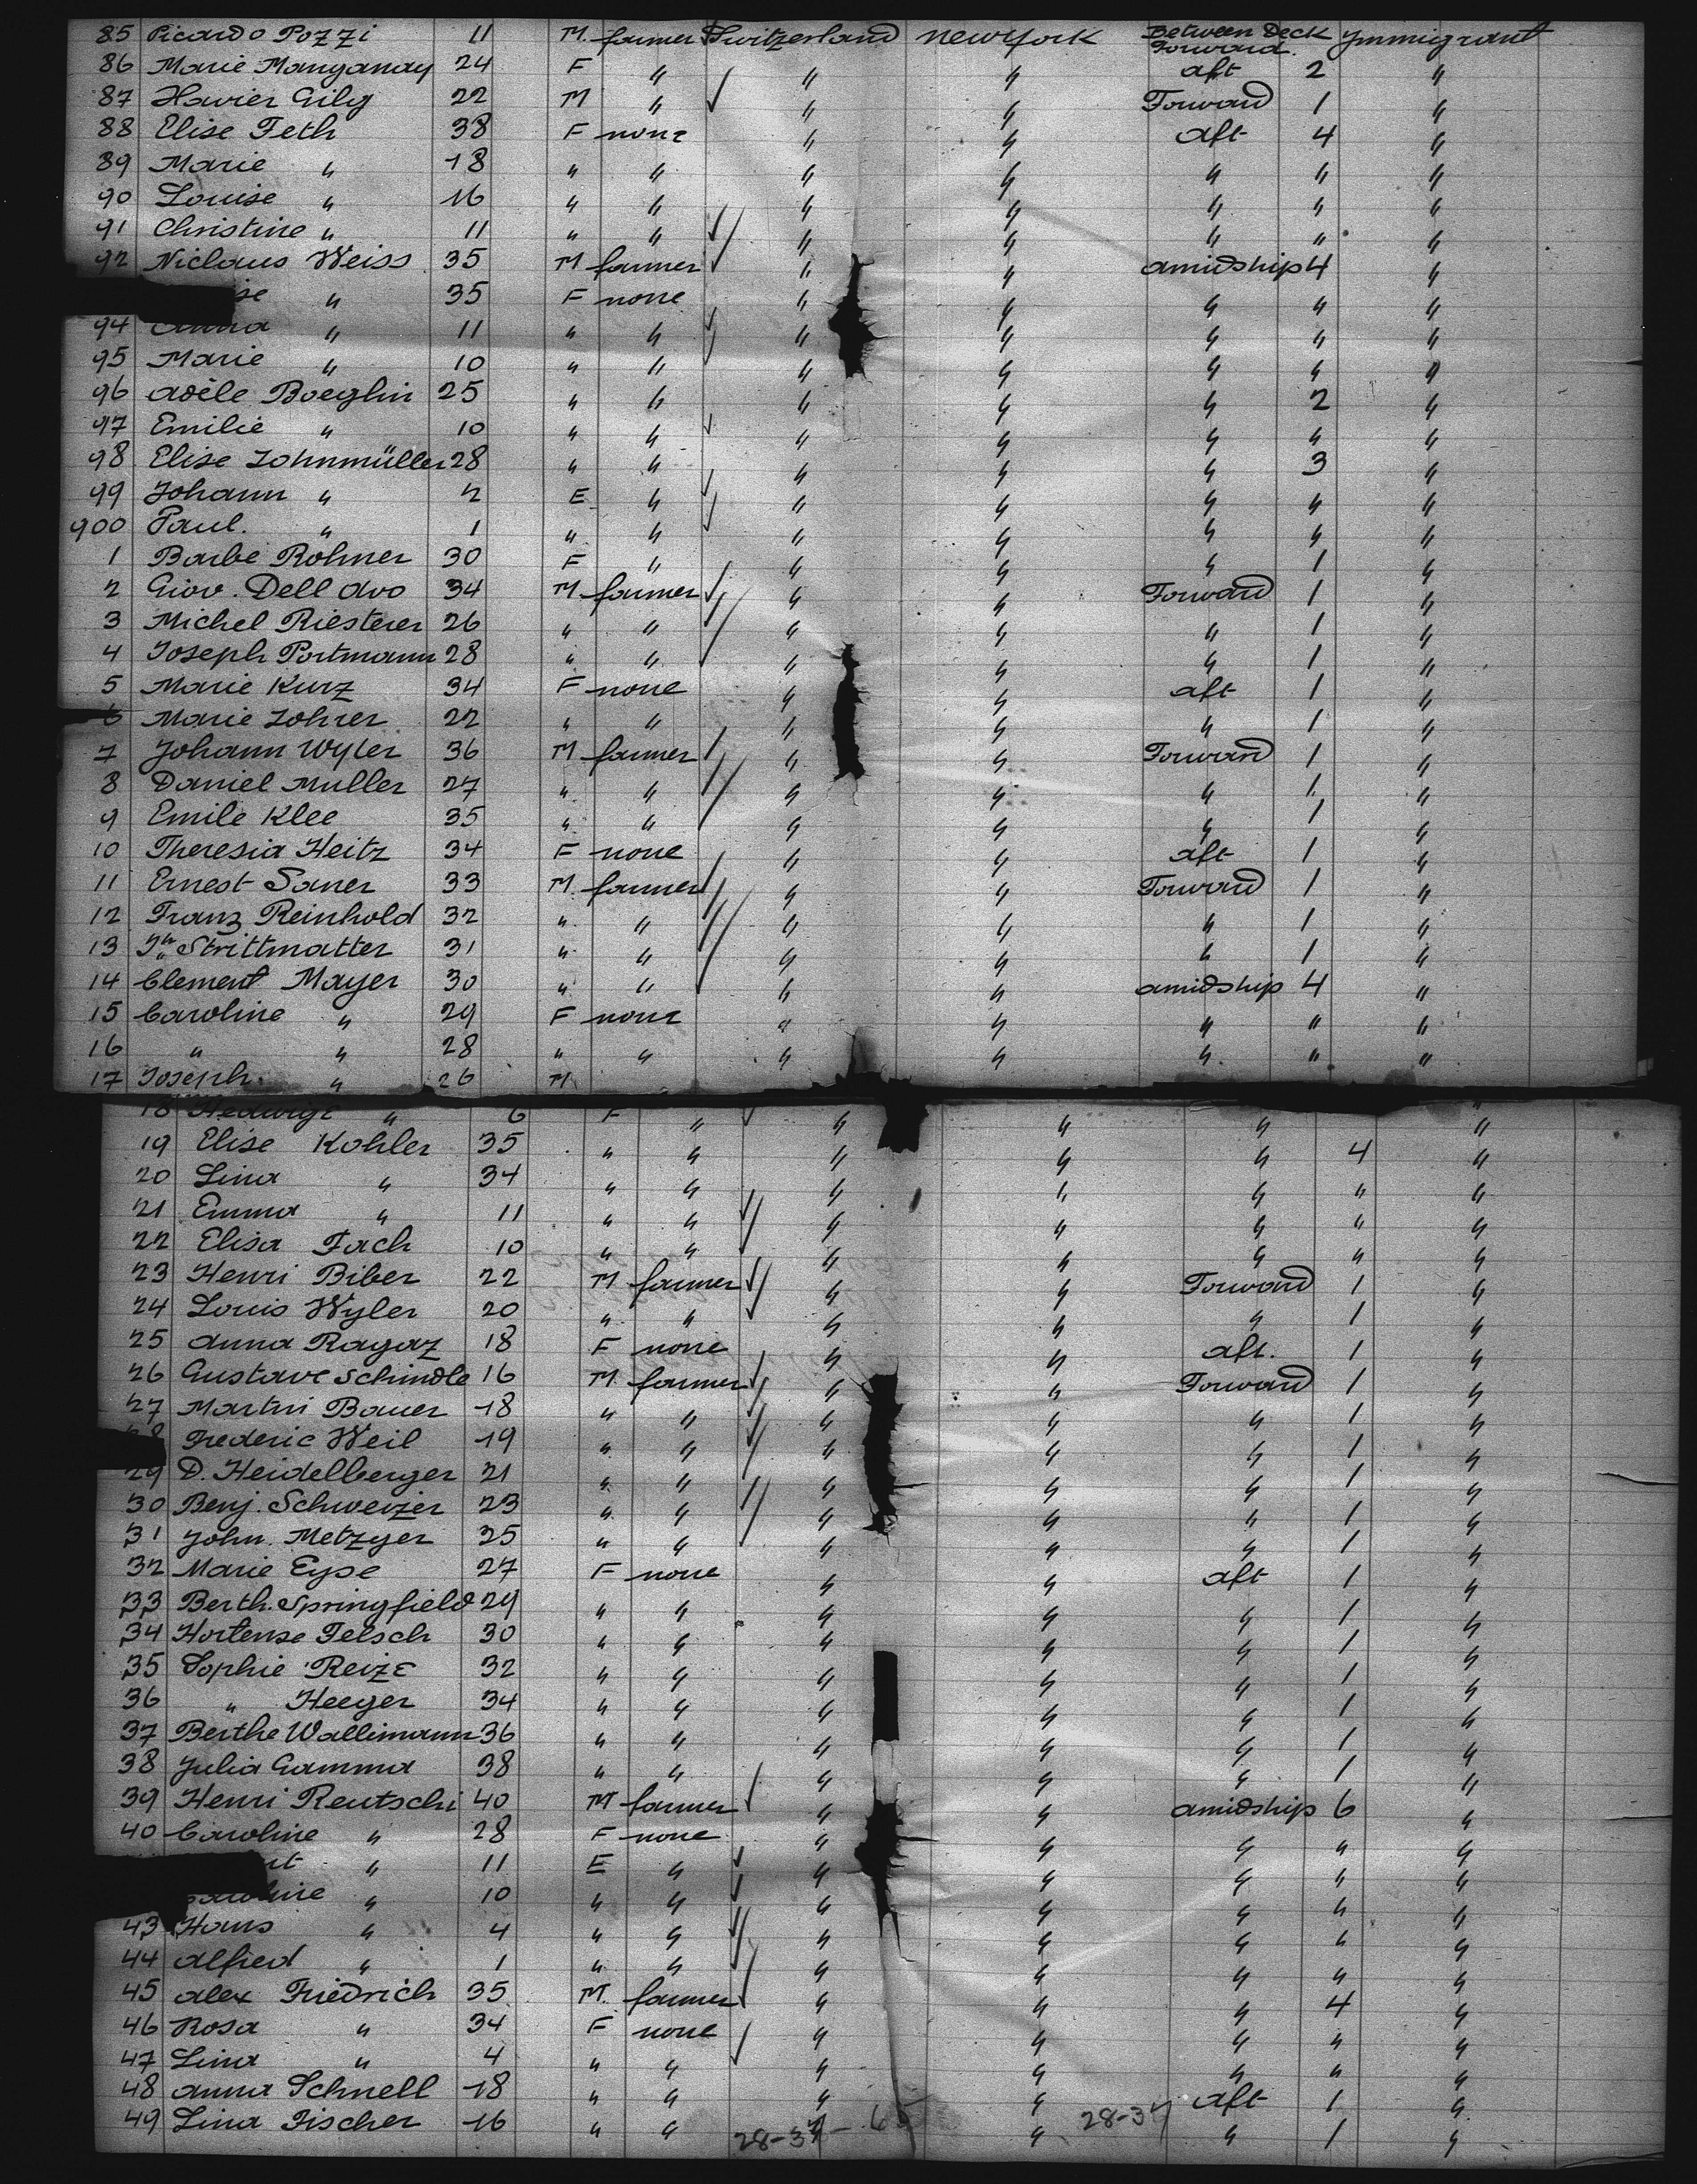 85 Picardo Pozzi 11 M. farmer Switzerland New York Between Deck Forward. Immigrant
86 Marie Manganay 24 F " " " aft 2 "
87 Xavier Gily 22 M " " " Forward 1 "
88 Elise Feth 38 F none " " aft 4 "
89 Marie " 18 " " " " " " "
90 Louise " 16 " " " " " " "
91 Christine " 11 " " " " " " "
92 Niclaus Weiss 35 M farmer " " amidship 4 "
se " 35 F none " " " " "
94 Anna " 11 " " " " " " "
95 Marie " 10 " " " " " " "
96 Adèle Boeglin 25 " " " " " 2 "
97 Emilie " 10 " " " " " " "
98 Elise Lohnmüller 28 " " " " " 3 "
99 Johann " 2 E " " " " " "
900 Paul. " 1 " " " " " " "
1 Barbe Rohner 30 F " " " " 1 "
2 Giov. Dell Avo 34 M farmer " " Forward 1 "
3 Michel Riesterer 26 " " " " " 1 "
4 Joseph Portmann 28 " " " " " 1 "
5 Marie Kurz 34 F none " " aft 1 "
6 Marie Lohrer 22 " " " " " 1 "
7 Johann Wyler 36 M farmer " " Forward 1 "
8 Daniel Muller 27 " " " " " 1 "
9 Emile Klee 35 " " " " " 1 "
10 Theresia Heitz 34 F none " " aft 1 "
11 Ernest Saner 33 M. farmer " " Forward 1 "
12 Franz Reinhold 32 " " " " " 1 "
13 Jh Strittmatter 31 " " " " " 1 "
14 Clement Mayer 30 " " " " amidship 4 "
15 Caroline " 29 F none " " " " "
16 " " 28 " " " " " " "
17 Joseph " 26 M
18 Hedwige " 6 F " " " " "
19 Elise Kohler 35 " " " " " 4 "
20 Lina " 34 " " " " " " "
21 Emma " 11 " " " " " " "
22 Elisa Fach 10 " " " " " " "
23 Henri Biber 22 M farmer " " Forward 1 "
24 Louis Wyler 20 " " " " " 1 "
25 Anna Ragaz 18 F none " " aft. 1 "
26 Gustave Schindle 16 M farmer " " Forward 1 "
27 Martin Bauer 18 " " " " " 1 "
28 Frederic Weil 19 " " " " " 1 "
29 D. Heidelberger 21 " " " " " 1 "
30 Benj. Schweizer 23 " " " " " 1 "
31 John. Metzger 25 " " " " " 1 "
32 Marie Eyse 27 F none " " aft 1 "
33 Berth. Springfield 29 " " " " " 1 "
34 Hortense Felsch 30 " " " " " 1 "
35 Sophie Reize 32 " " " " " 1 "
36 " Heeger 34 " " " " " 1 "
37 Berthe Wallimann 36 " " " " " 1 "
38 Julia Gamma 38 " " " " " 1 "
39 Henri Rentschi 40 M farmer " " amidship 6 "
40 Caroline " 28 F none " " " " "
" 11 E " " " " " "
Caroline " 10 " " " " " " "
43 Hans " 4 " " " " " " "
44 Alfred " 1 " " " " " " "
45 Alex Friedrich 35 M. farmer " " " 4 "
46 Rosa " 34 F none " " " " "
47 Lina " 4 " " " " " " "
48 Anna Schnell 18 " " " " aft 1 "
49 Lina Fischer 16 " " " " " 1 "